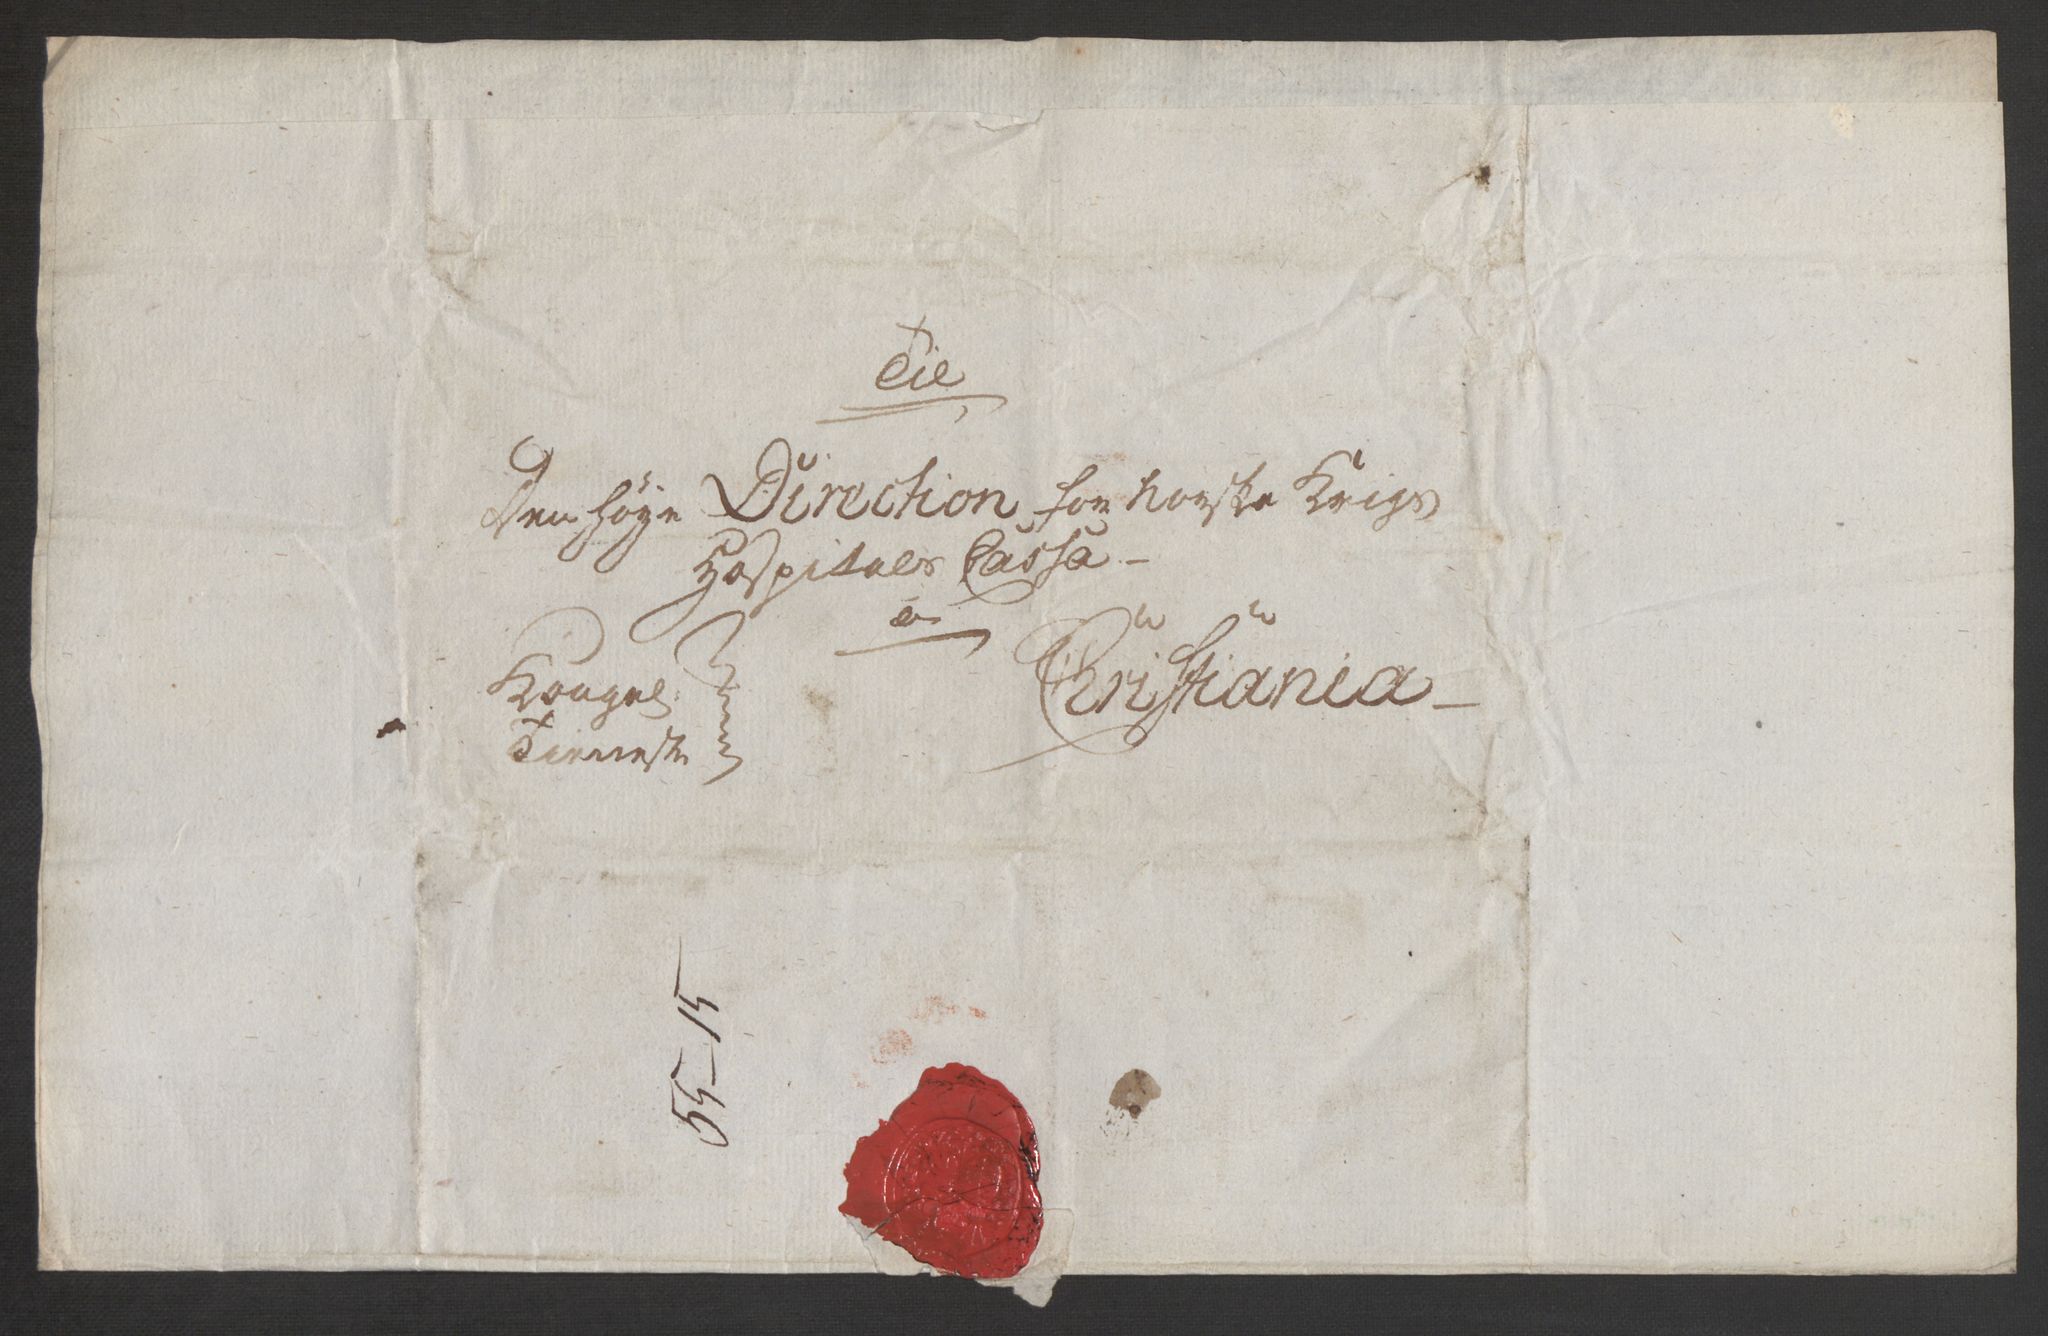 Til
Den høye Direction for norske Krigs
Hospitals Cassa
a
Christiania
Kongel:
Tieneste
55-15